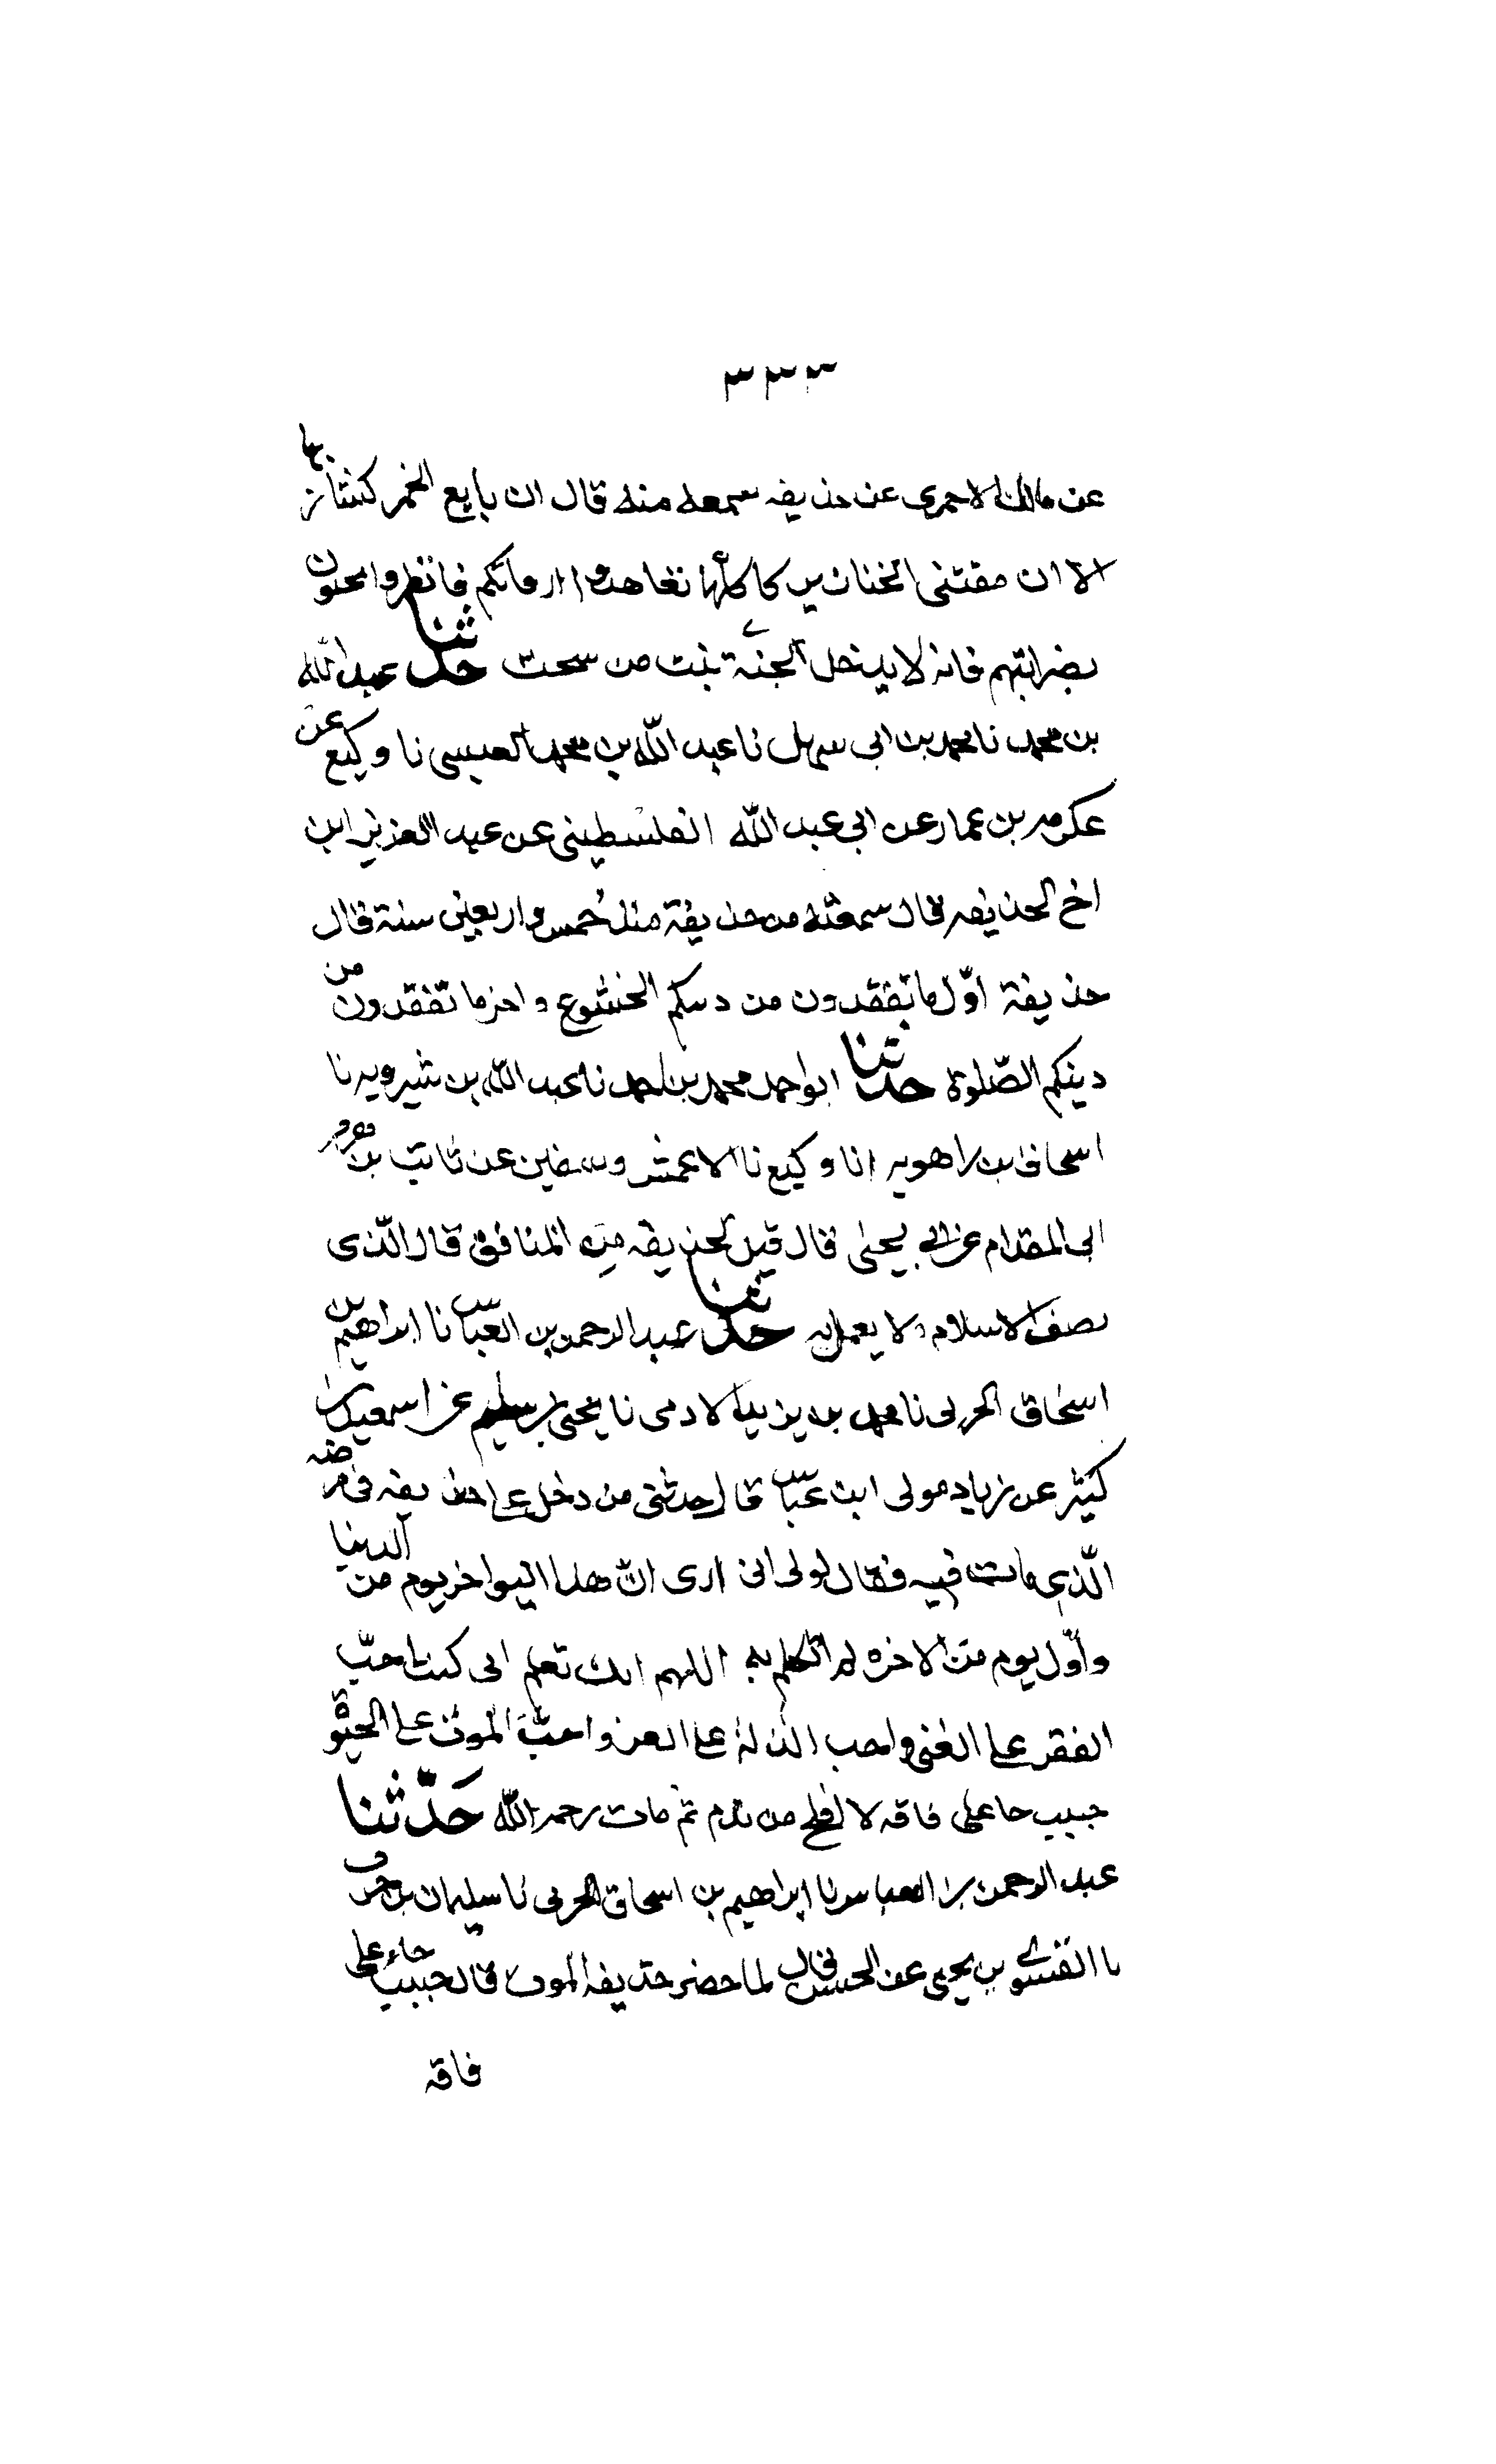 ٣٣٣
عن مالك الاحمرى عن حذيفه سمعه منه قال ان بايع الخمر كشاربها
الا ان مقتنى الخنازير كاكلها تعاهدوا ارقاتكم فانظروا يجئون
بضرائبهم فانه لا يدخل الجنة نبت من سحت حدثنا عبد الله
بن محمد نا محمد بن ابى سهل نا عبد الله بن محمد العبسى نا وكيع عن
عكرمه بن عمار عن ابى عبد الله الفلسطينى عن عبد العزيز ابن
اخ لحذيفه قال سمعته من حذيفة منذ خمس واربعين سنة قال
حذيفة اوّل ما تفقدون من دينكم الخشوع واخر ما تفقدون من
دينكم الصّلوة حدثنا ابو احمد محمد بن احمد نا عبد الله بن شيرويه نا
اسحاق بن راهويه انا وكيع نا الاعمش وسفين عن ثابت بن هرمز
ابى المقدام عن ابى يحيى قال قيل لحذيفه من المنافق قال الّذى
يصف الاسلام ولا يعمل به حدثنا عبد الرحمن بن العباس نا ابراهيم بن
اسحاق الحربى نا محمد بن يزيد الادمى نا يحيى بن سليم عن اسمعيل بن
كثير عن زياد مولى ابن عباس قال حدثنى من دخل على حذيفه فى مرضه
الّذى مات فيه فقال لولا انى ارى انّ هذا اليوم اخر يوم من الدنيا
واوّل يوم من الاخره لم اتكلم به اللهم انك تعلم انى كنت احبّ
الفقر على الغنى واحب الذلة على العز واحبّ الموت على الحيٰوة
حبيب جا على فاقه لا افلح من ندم ثم مات رحمه الله حَدّثنا
عبد الرحمن بن العباس نا ابراهيم بن اسحاق الحربى نا سليمان بن حرب
نا السرى بن يحيى عن الحسن قال لما حضر حذيفه الموت قال حبيب جاء على
فاقه